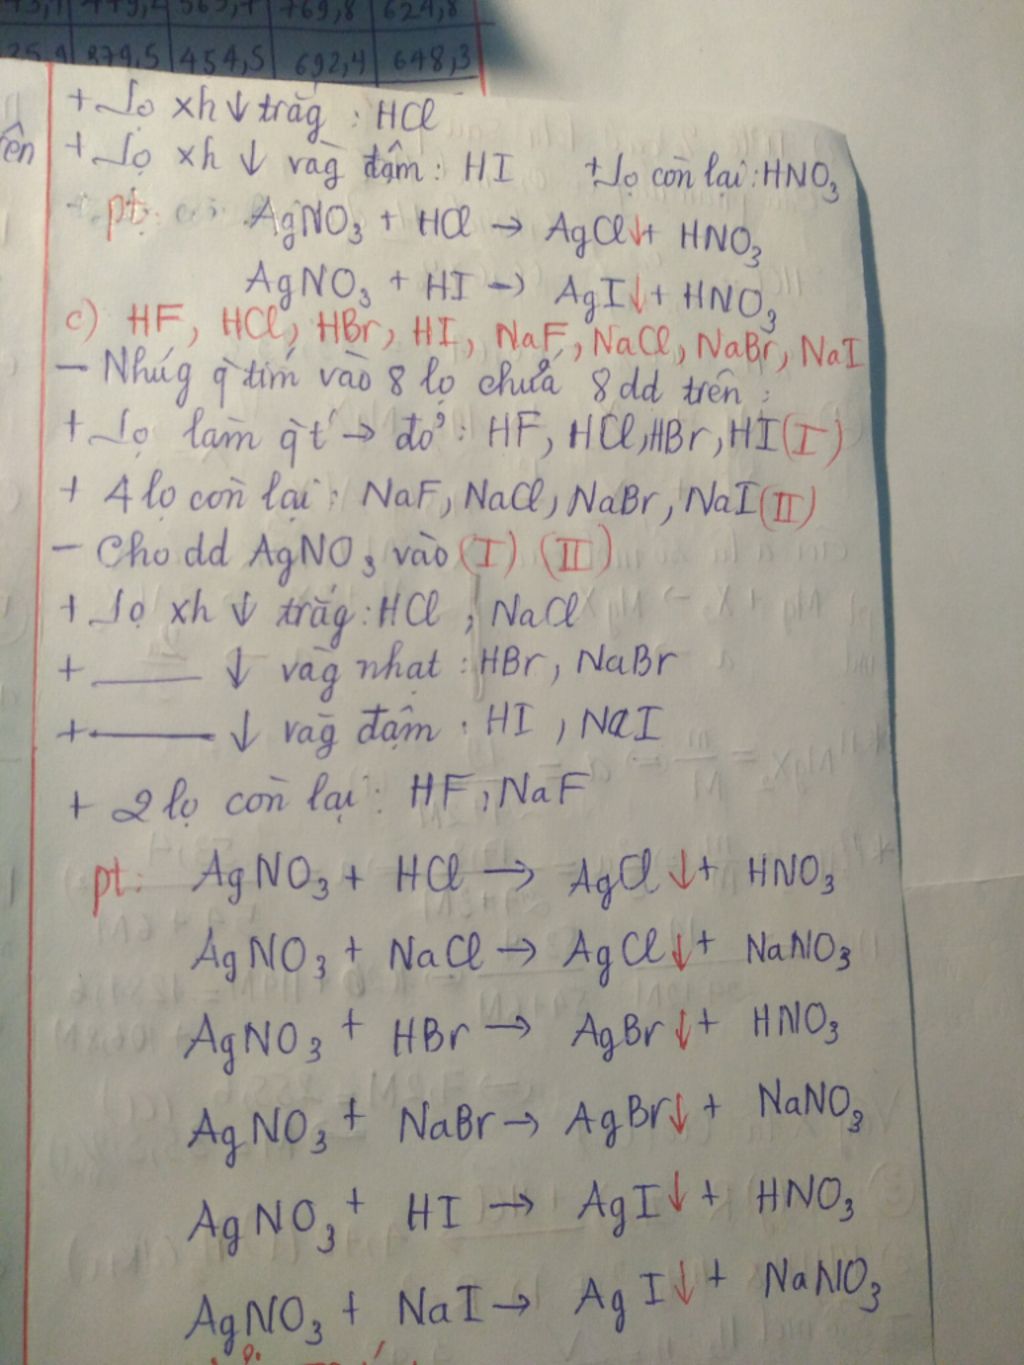 879,5 454,5 692,4 648,3
+ Lọ xh ↓ trắg : HCl
ên
+ Lọ xh ↓ vàg đậm : HI + Lọ còn lại : HNO₃
pt: AgNO₃ + HCl → AgCl↓ + HNO₃
AgNO₃ + HI → AgI↓ + HNO₃
c) HF, HCl, HBr, HI, NaF, NaCl, NaBr, NaI
- Nhúg q̀ tím vào 8 lọ chứa 8 dd trên :
+ Lọ làm q̀ t́ → đỏ : HF, HCl, HBr, HI (I)
+ 4 lọ còn lại : NaF, NaCl, NaBr, NaI (II)
- Cho dd AgNO₃ vào (I) (II)
+ Lọ xh ↓ trắg : HCl , NaCl
+ ___ ↓ vàg nhạt : HBr, NaBr
+ ___ ↓ vàg đậm : HI , NaI
+ 2 lọ còn lại : HF, NaF
pt: AgNO₃ + HCl → AgCl ↓ + HNO₃
AgNO₃ + NaCl → AgCl ↓ + NaNO₃
AgNO₃ + HBr → AgBr ↓ + HNO₃
AgNO₃ + NaBr → AgBr ↓ + NaNO₃
AgNO₃ + HI → AgI ↓ + HNO₃
AgNO₃ + NaI → AgI ↓ + NaNO₃